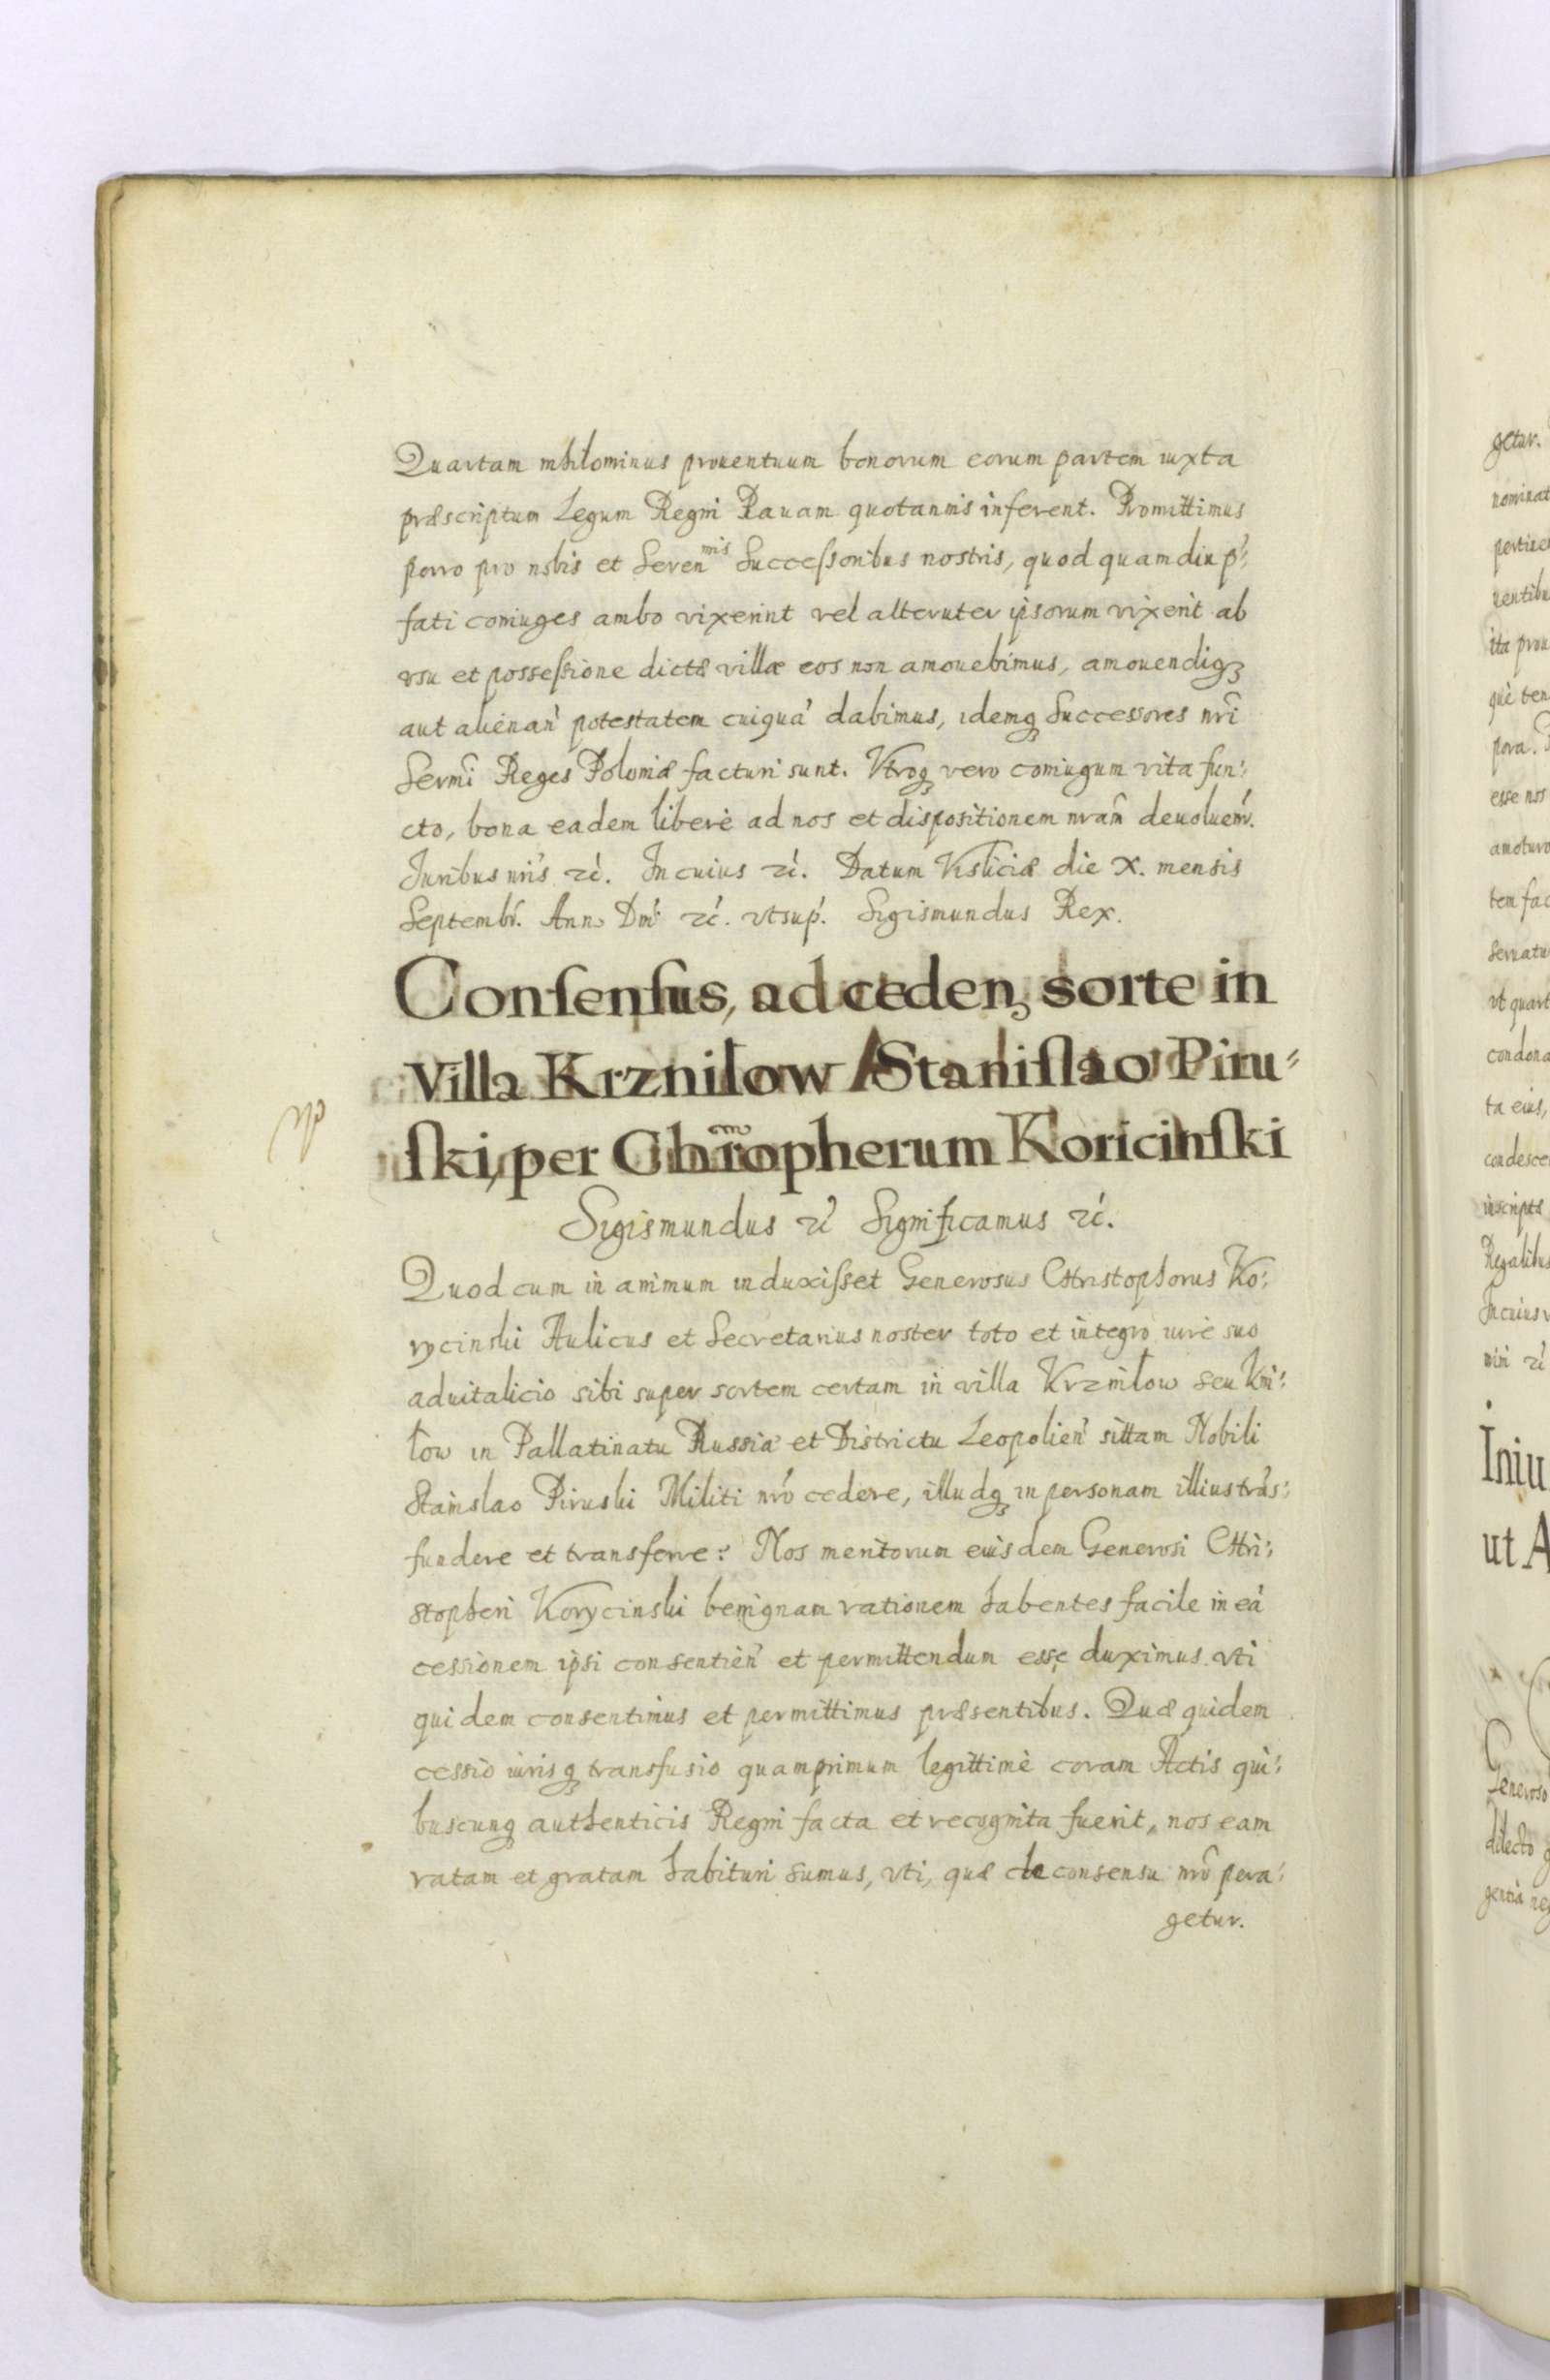 Quartam nihilominus prouentuum bonorum eorum partem iuxta
præscriptum Legum Regni Rauam quotannis inferent. Promittimus
porro pro nobis et Seren^mis Successoribus nostris, quod quamdiu p͛:
fati coniuges ambo vixerint vel alteruter ipsorum vixerit ab
vsu et possessione dictæ villæ eos non amouebimus, amouendiqꝫ
aut alienan̛ potestatem cuiquā dabimus, idemqꝫ Successores nr̃i
Serm̃i Reges Poloniæ facturi sunt. Vtroqꝫ vero coniugum vita fun:
cto, bona eadem liberè ad nos et dispositionem nram̃ deuoluent͛.
Juribus nr̃is ꝛc̛. In cuius ꝛc̛. Datum Visliciæ die X. mensis
Septembr̛. Anno Dni̛ ꝛc̛. vtsup̛. Sigismundus Rex.
Conſenſus, ad ceden, sorte in
Villa Krzniłow Staniſlao Piru=
ſki, per Chrõpherum Koricinſki
Sigismundus ꝛc̛ Significamus ꝛc̛.
Quod cum in animum induxisset Generosus Christophorus Ko:
rycinski Aulicus et Secretarius noster toto et integro iure suo
aduitalicio sibi super sortem certam in villa Krzniłow seu Kni:
łow in Pallatinatu Russiæ et Districtu Leopolien̛ sittam Nobili
Stanislao Piruski Militi nr̃o cedere, illudqꝫ in personam illius trās:
fundere et transferre: Nos meritorum eiusdem Generosi Chri:
stopheri Korycinski benignam rationem habentes facile in eā
cessionem ipsi consentien̛ et permittendum esse duximus vti
quidem consentimus et permittimus præsentibus. Quæ quidem
cessio iurisqꝫ transfusio quamprimum legittimè coram Actis qui:
buscunqꝫ authenticis Regni facta et recognita fuerit, nos eam
ratam et gratam habituri sumus, vti, quæ de consensu nr̃o pera:
getur.
getur.
nominat
ita prou
esse nos
tem fac
ut quart
ta eius,
Regalibus
In cuius
ꝛc̛
Iniu
ut A
Generoso
dilecto